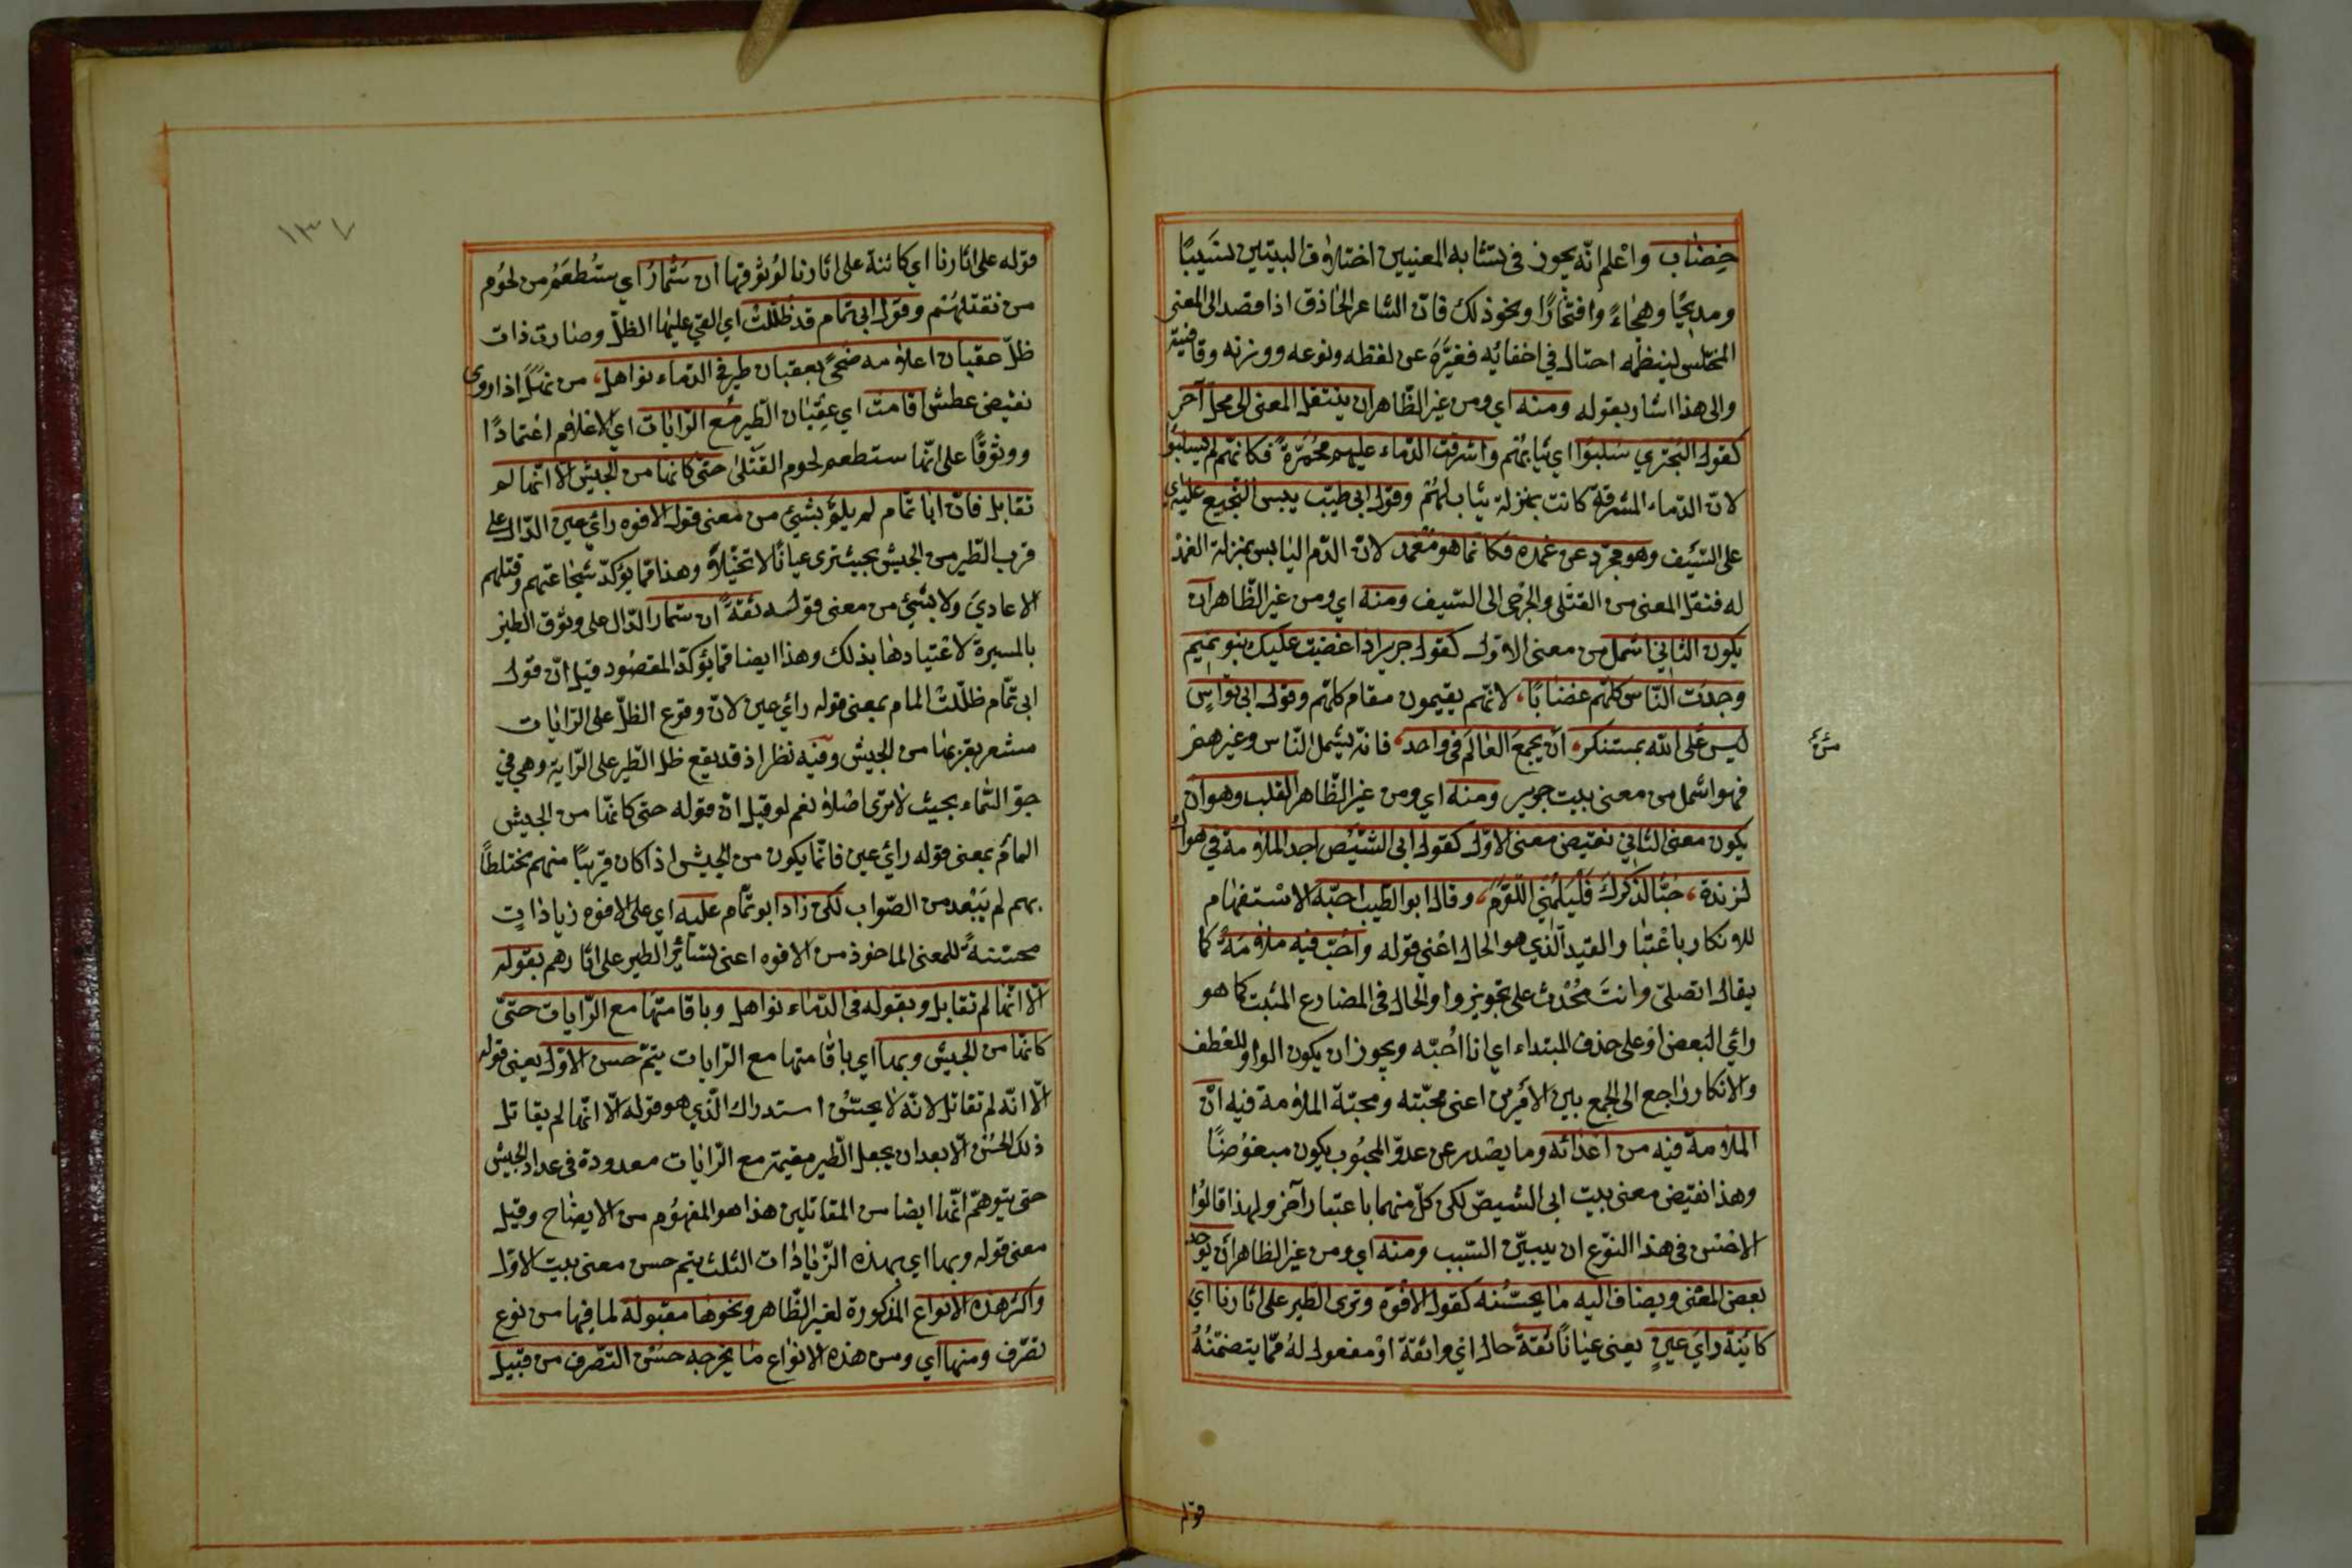 خِضاب واعلم انّه يجوز فى تشابه المعنيين اختلاف البيتين نسيبًا
ومديحًا وهجاءً وافتخارًا ونحو ذلك فانّ الشاعر الحاذق اذا قصد الى المعنى
المختلس لينظمه احتال فى اخفائه فغيّرَه عن لفظه ونوعه ووزنه وقافيته
والى هذا اشار بقوله ومنه اى ومن غير الظّاهر ان ينتقل المعنى الى محلّ آخر
كقول البحترى سُلبوا اى ثيابهم واشرقت الدّماء عليهم محمَرّةً فكانّهم لم يسلبوا
لانّ الدّماء المشرقة كانت بمنزلة ثياب لهم وقول ابى طيّب يبس النّجيع عليه اى
على السّيف وهو مجرّد عن غمده فكانّما هو مُغمد لانّ الدّم اليابس بمنزلة الغمد
له فنقل المعنى من القتلى والجرحى الى السّيف ومنه اى ومن غير الظّاهر ان
يكون الثّانى اشمل من معنى الاوّل كقول جرير اذا غضبت عليك بنو تميم
وجدت النّاس كلّهم غضابًا، لانّهم يقيمون مقام كلّهم وقول ابى نواسٍ
ليس على الله بمستنكر، ان يجمع العالَم فى واحد، فانّه يشمل النّاس وغيرهم
فهو اشمل من معنى بيت جرير ومنه اى ومن غير الظّاهر القلب وهو ان
يكون معنى الثّانى نقيض معنى الاوّل كقول ابى الشّيص اجد الملامة فى هواك
لذيذة، حبًّا لذكرك فليلمنى اللّوّم، وقال ابو الطّيب احبّه الاستفهام
للانكار باعتبار القيد الّذى هو الحال اعنى قوله واحبّ فيه ملامةً كما
يقال اتصلّى وانت مُحْدث على تجويز واو الحال فى المضارع المثبت كما هو
رأى البعض او على حذف المبتداء اى انا احُبّه ويجوز ان يكون الواو للعطف
والانكار راجع الى الجمع بين الامرين اعنى محبّته ومحبّة الملامة فيه انّ
الملامة فيه من اعدائه وما يصدر عن عدوّ المحبوب يكون مبغوضًا
وهذا نقيض معنى بيت ابى الشيص لكن كلّ منهما باعتبار آخر ولهذا قالوا
الاحسن فى هذا النّوع ان يبيّن السّبب ومنه اى ومن غير الظاهر ان يوخذ
بعض المعنى ويضاف اليه ما يحسّنه كقول الافوه وترى الطّير على اثارنا اى
كائنة رأى عينٍ يعنى عيانًا ثقةً حال اى واثقة او مفعول له ممّا يتضمّنه
قوله
قوله على اثارنا اى كائنة على اثارنا لوُثوقها ان سَتُمارُ اى ستُطعَمُ من لحُوم
من نقتلهُم وقول ابى تمام قد ظُلّلَتْ اى القى عليها الظلّ وصارت ذات
ظلّ عقبان اعلامه ضحىً بعقبان طير فى الدّماء نواهل، من نَهِلَ اذا روى
نقيض عطش اقامت اى عِقبان الطّير مع الرّايات اى الاعلام اعتمادًا
ووثوقًا على انّها ستطعم لحوم القتلى حتى كانها من الجيش الا انّها لم
تقاتل فانّ ابا تمام لم يلمّ بشئ من معنى قول الافوه رأى عين الدّال على
قرب الطّير من الجيش بحيث ترى عيانًا لا تخيّلاً وهذا ممّا يؤكّد شجاعتهم وقتلهم
الاعادى ولا بشئ من معنى قوله ثقةً ان ستمار الدّال على وثوق الطير
بالمسيرة لاعتيادها بذلك وهذا ايضا ممّا يؤكّد المقصود قيل انّ قول
ابى تمّام ظلّلت المام بمعنى قوله رأى عين لانّ وقوع الظلّ على الرّايات
مشعر بقربها من الجيش وفيه نظر اذ قد يقع ظلّ الطّير على الرّاية وهى فى
جوّ السّماء بحيث لا ترى اصلا نعم لو قيل انّ قوله حتى كانّها من الجيش
المام بمعنى قوله رأى عين فانّما يكون من الجيش اذا كان قريبًا منهم مختلطًا
بهم لم يَبْعُد من الصّواب لكن زاد ابو تمّام عليه اى على الافوه زياداتٍ
محسّنةً للمعنى الماخوذ من الافوه اعنى تساير الطير على اثارهم بقوله
الّا انّها لم تقاتل وبقوله فى الدّماء نواهل وباقامتها مع الرّايات حتّى
كانّها من الجيش وبها اى باقامتها مع الرّايات يتمّ حسن الاوّل يعنى قوله
الّا انّه لم تقاتل لانّه لا يحسُن استدراك الّذى هو قوله الّا انّها لم يقاتل
ذلك الحُسْن الّا بعد ان يجعل الطّير مقيمة مع الرّايات معدودة فى عداد الجيش
حتى يتوهّم انّها ايضا من المقاتلين هذا هو المفهُوم من الايضاح وقيل
معنى قوله وبها اى بهذه الزّيادات الثلث يتم حسن معنى بيت الاوّل
واكثر هذه الانواع المذكورة لغير الظّاهر ونحوها مقبولة لما فيها من نوع
تصرّف ومنها اى ومن هذه الانواع ما يخرجه حسْن التصّرف من قبيل
١٣٧